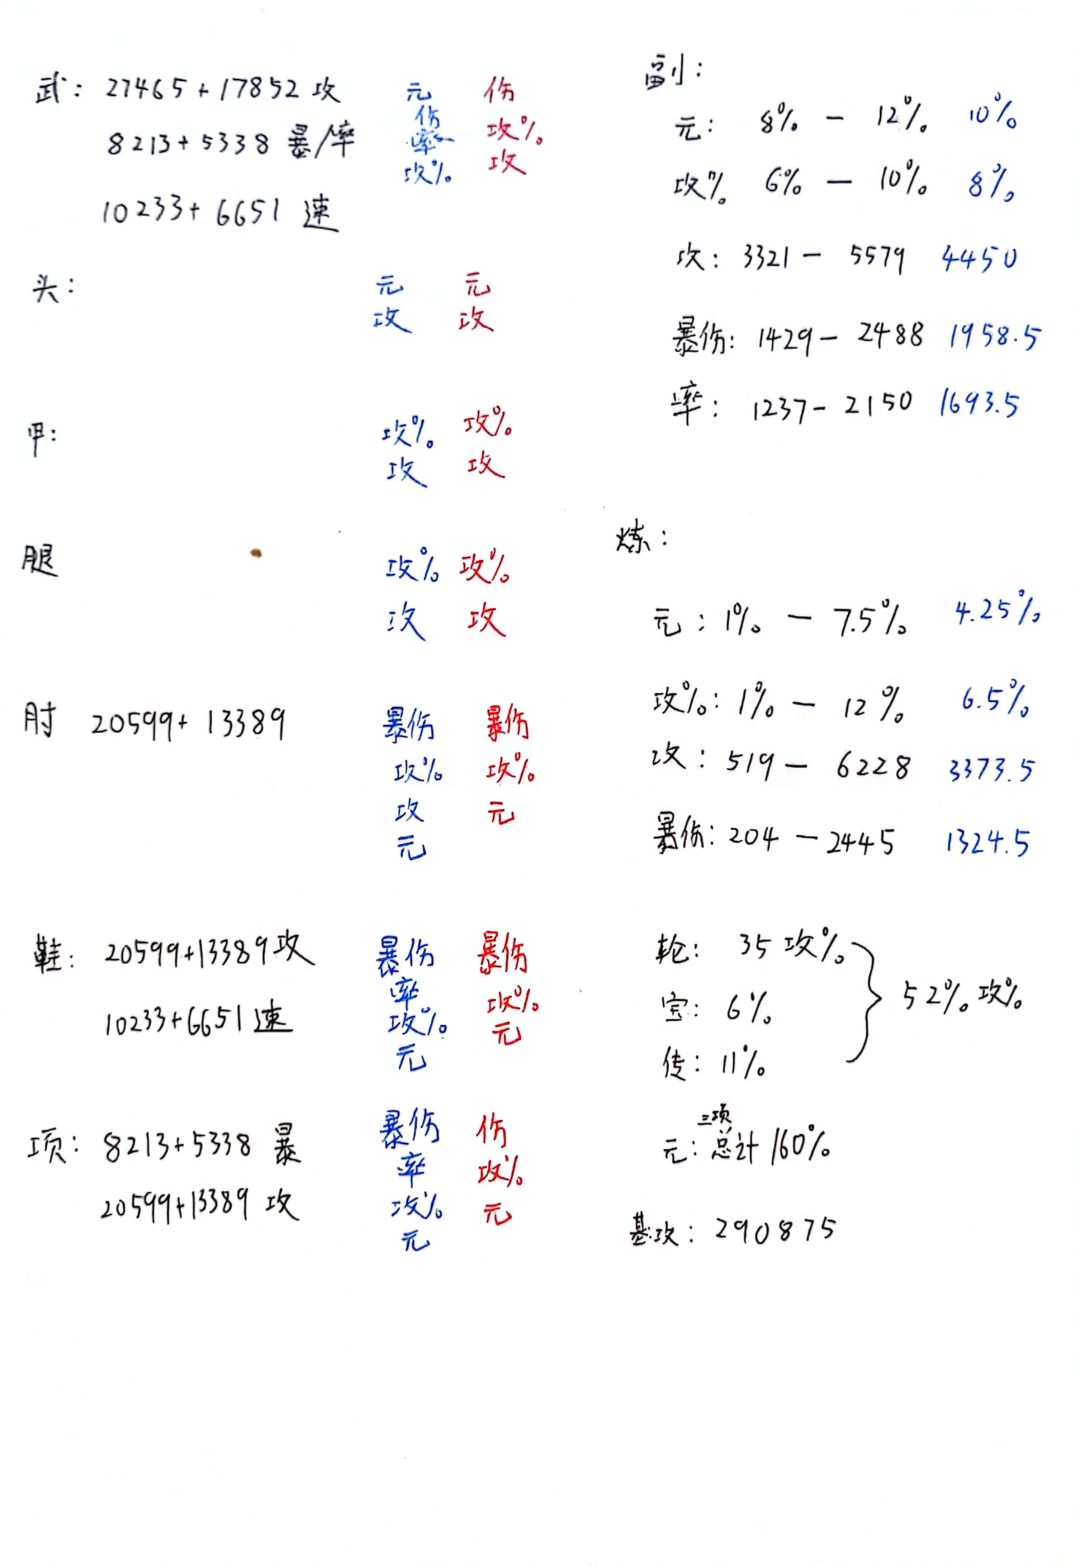 武：27465+17852 攻
8213+5338 暴/率
10233+6651 速
元 伤
伤
率 攻%
攻% 攻
头：
元 元
攻 攻
甲：
攻% 攻%
攻 攻
腿
攻% 攻%
攻 攻
肘 20599+13389
暴伤 暴伤
攻% 攻%
攻 元
元
鞋：20599+13389攻
10233+6651速
暴伤 暴伤
率
攻% 攻%
元 元
项：8213+5338 暴
20599+13389 攻
暴伤 伤
率 攻%
攻% 元
元
副：
元：8% — 12% 10%
攻% 6% — 10% 8%
攻：3321 — 5579 4450
暴伤：1429 — 2488 1958.5
率：1237 - 2150 1693.5
炼：
元：1% — 7.5% 4.25%
攻%：1% — 12% 6.5%
攻：519 — 6228 3373.5
暴伤：204 — 2445 1324.5
轮：35 攻%
宝：6%
传：11%
52% 攻%
三项
元：总计 160%
基攻：290875